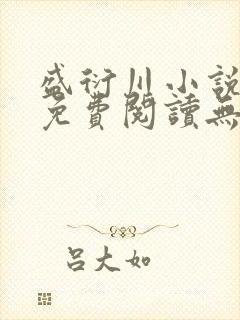 盛衍川小說
免費閱讀無
呂大如